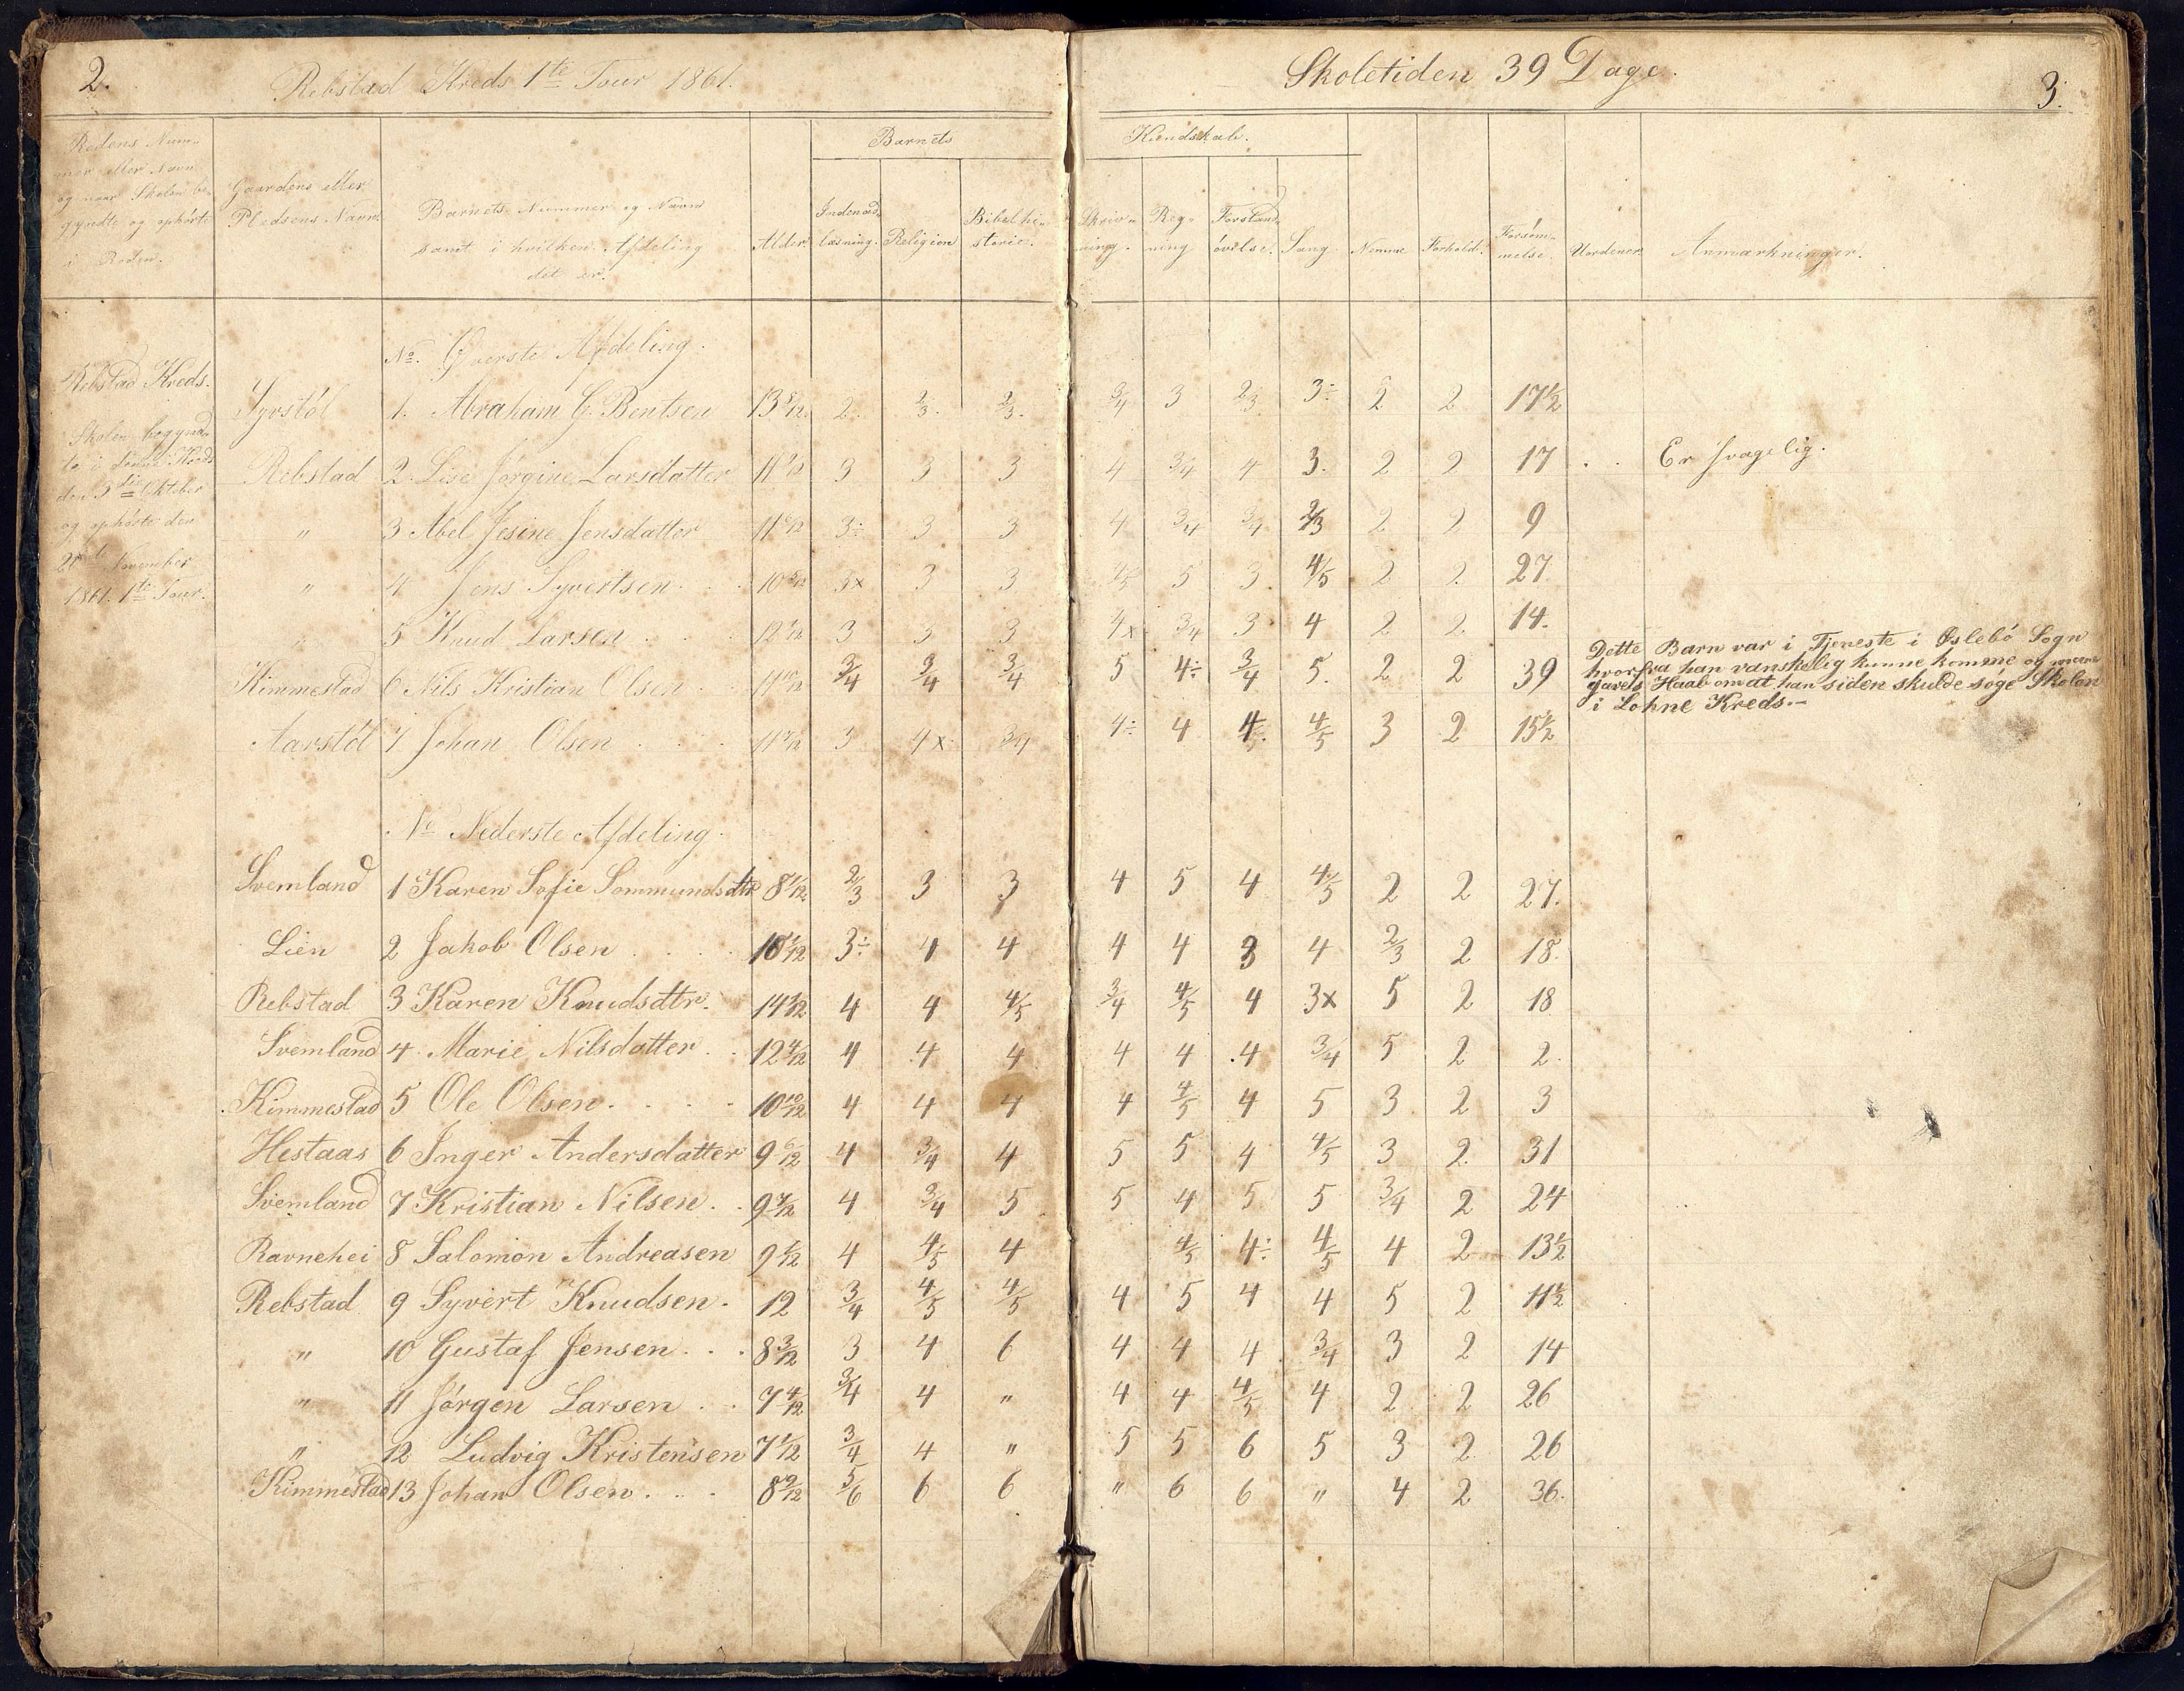 2.
Rebstad Kreds 1te Tour 1861.
Skoletiden 39 Dage.
3.
Rodens Num-
mer eller Navn
og naar Skolen be-
gyndte og ophørte
i Roden.
Gaardens eller
Pladsens Navn
Barnets Nummer og Navn
samt i hvilken Afdeling
det er.
Alder
Barnets
Indenad-
læsning.
Religion
Bibelhi-
storie.
Kundskab.
Skriv-
ning.
Reg-
ning
Forstand-
øvelse.
Sang
Nemme
Forhold.
Forsøm-
melse.
Uordener.
Anmærkninger.
Rebstad Kreds.
Skolen begynd-
te i denne Kreds
den 3die Oktober
og ophørte den
21de November
1861. 1te Tour.
No. Øverste Afdeling.
Syrstøl 1. Abraham G. Bentsen 13 8/12 2. 2/3. 2/3. 3/4 3 2/3 3÷ 2 2 17 1/2
Rebstad 2. Lise Jørgine Larsdatter 3 3 3 4 3/4 4 3. 2 2 17 . . Er svagelig.
" 3 Abel Jesine Jensdatter 3÷ 3 3 4 3/4 3/4 2/3 2 2 9
" 4 Jens Syvertsen 3x 3 3 5 3 4/5 2 2 27
" 5 Knud Larsen 3 3 3 4x 3/4 3 4 2 2 14.
Kimmestad 6 Nils Kristian Olsen 11 10/12 3/4 3/4 3/4 5 4÷ 3/4 5. 2 2 39
Dette Barn var i Tjeneste i Øslebø Sogn
hvorfra han vanskelig kunne komme og man
gaves Haab om at han siden skulde søge Skolen
i Lohne Kreds.-
Aarstøl 7 Johan Olsen 3 4x 3/4 4÷ 4 4/5 4/5 3 2 15 1/2
No Nederste Afdeling.
Svemland 1 Karen Sofie Sommundsdtr 2/3 3 3 4 5 4 4/5 2 2 27.
Lien 2 Jakob Olsen 3÷ 4 4 4 4 3 4 2/3 2 18.
Rebstad 3 Karen Knudsdtr. 4 4 4/5 3/4 4/5 4 3x 5 2 18
Svemland 4 Marie Nilsdatter 12 4/12 4 4 4 4 4 4 3/4 5 2 2.
Kimmestad 5 Ole Olsen 10 10/12 4 4 4 4 4/5 4 5 3 2 3
Hestaas 6 Inger Andersdatter 9 6/12 4 3/4 4 5 5 4 4/5 3 2 31
Svemland 7 Kristian Nilsen 9 7/12 4 3/4 5 5 4 5 5 3/4 2 24
Ravnehei 8 Salomon Andreasen 4 4/5 4 4/5 4÷ 4/5 4 2 13 1/2
Rebstad 9 Syvert Knudsen. 12 3/4 4/5 4/5 4 5 4 4 5 2 11 1/2
" 10 Gustaf Jensen 8 3/12 3 4 6 4 4 4 3/4 3 2 14
" 11 Jørgen Larsen 7 4/12 3/4 4 " 4 4 4/5 4 2 2 26
" 12 Ludvig Kristensen 7 1/12 3/4 4 " 5 5 6 5 3 2 26
Kimmestad 13 Johan Olsen 8 9/12 5/6 6 6 " 6 6 " 4 2 36.